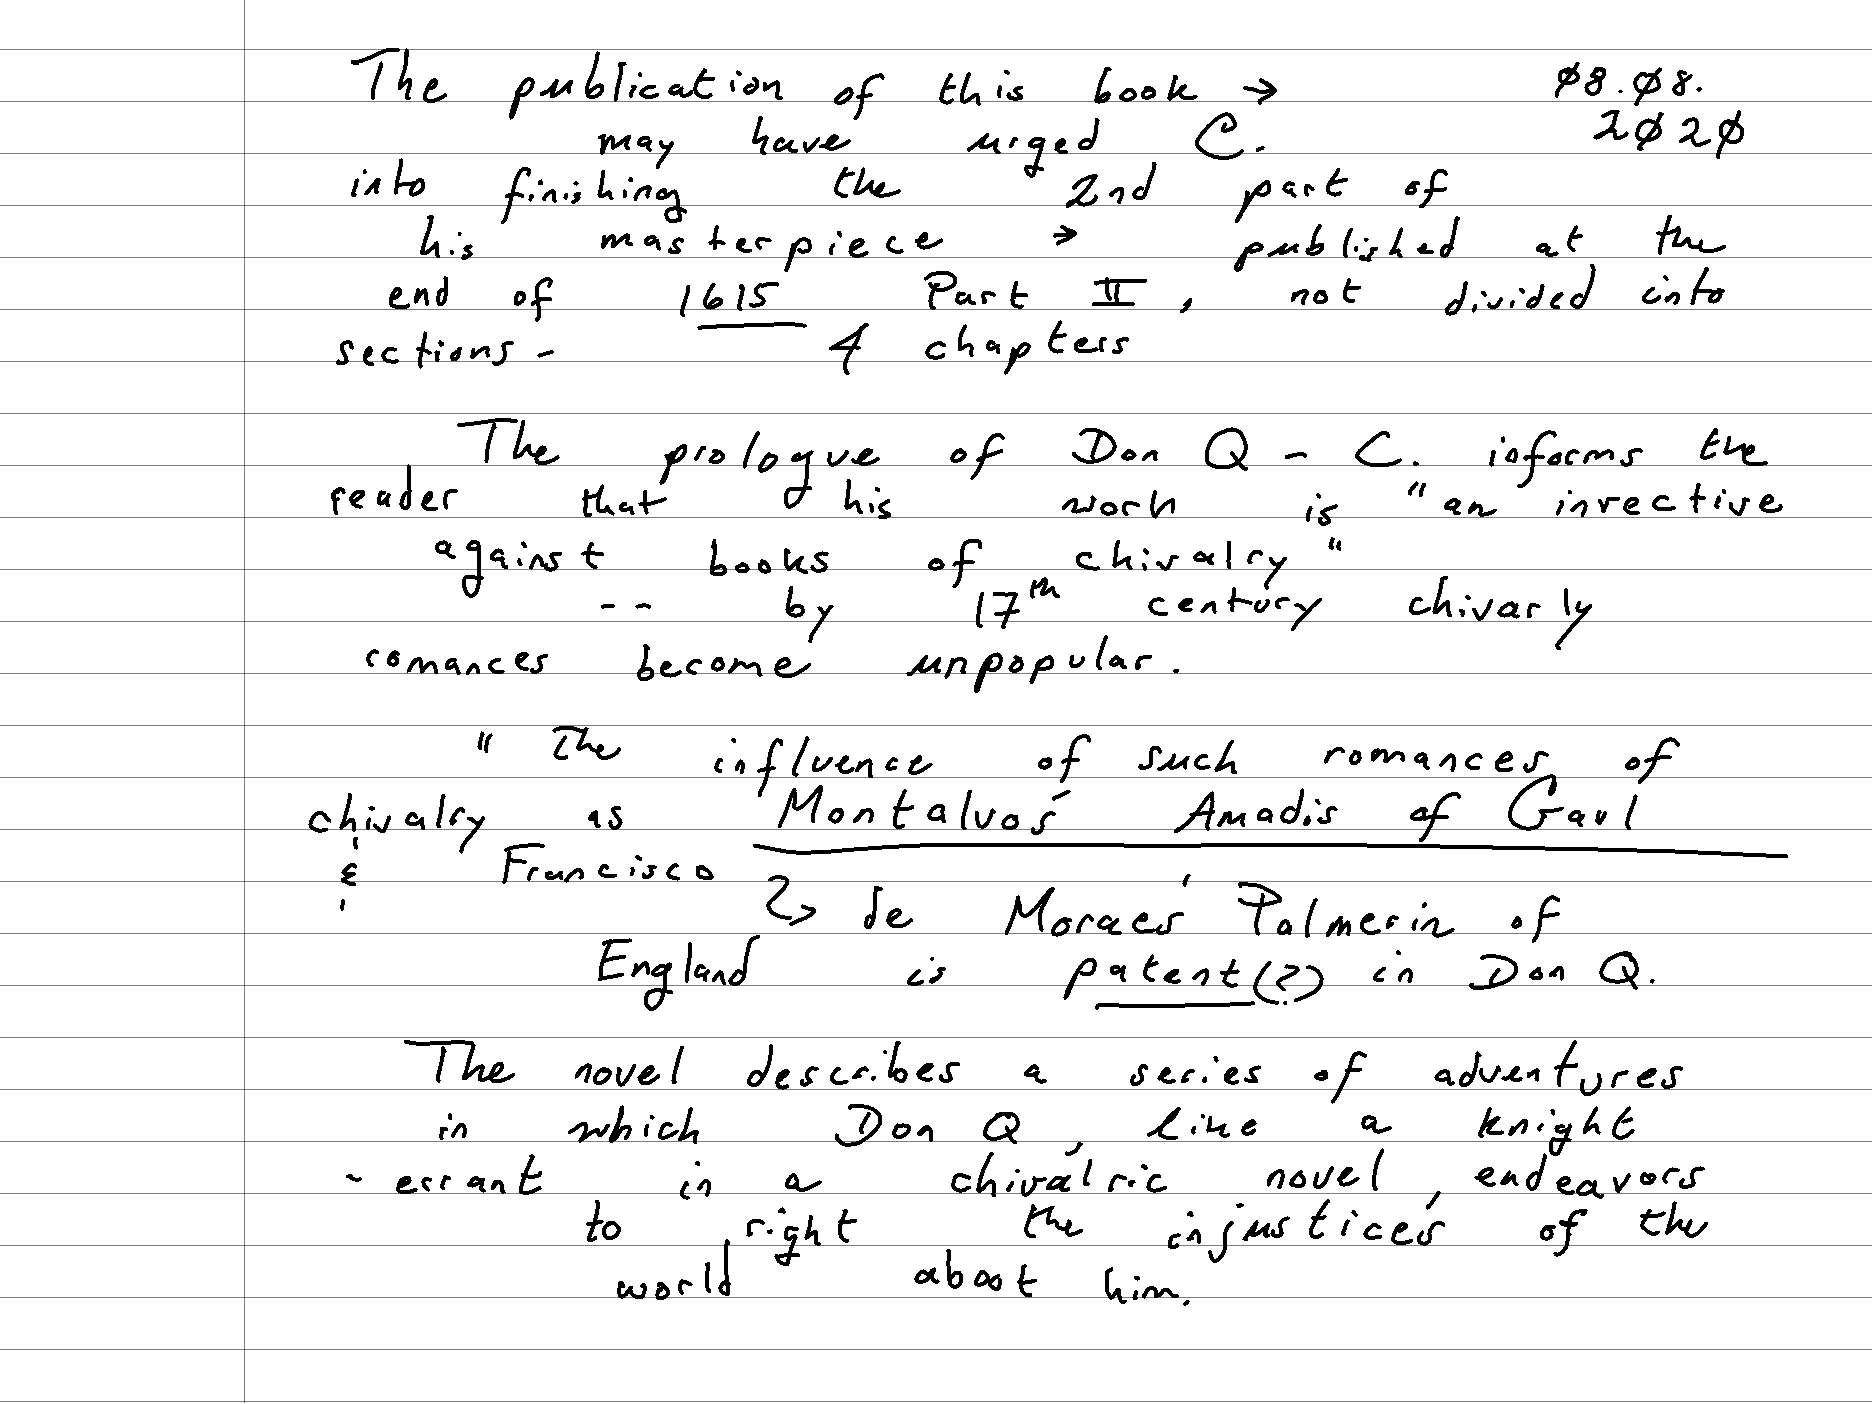 The publication of this book → ø8.ø8.
may have urged C. 2ø2ø
into finishing the 2nd part of
his masterpiece → published at the
end of 1615 Part II, not divided into
sections - 4 chapters
The prologue of Don Q - C. informs the
reader that his work is "an invective
against books of chivalry"
-- by 17th century chivarly
romances become unpopular.
"The influence of such romances of
chivalry as Montalvo's Amadis of Gaul
& Francisco
↳ de Moraes' Palmerin of
England is patent(?) in Don Q.
The novel describes a series of adventures
in which Don Q, like a knight
- errant in a chivalric novel, endeavors
to right the injustices of the
world about him.